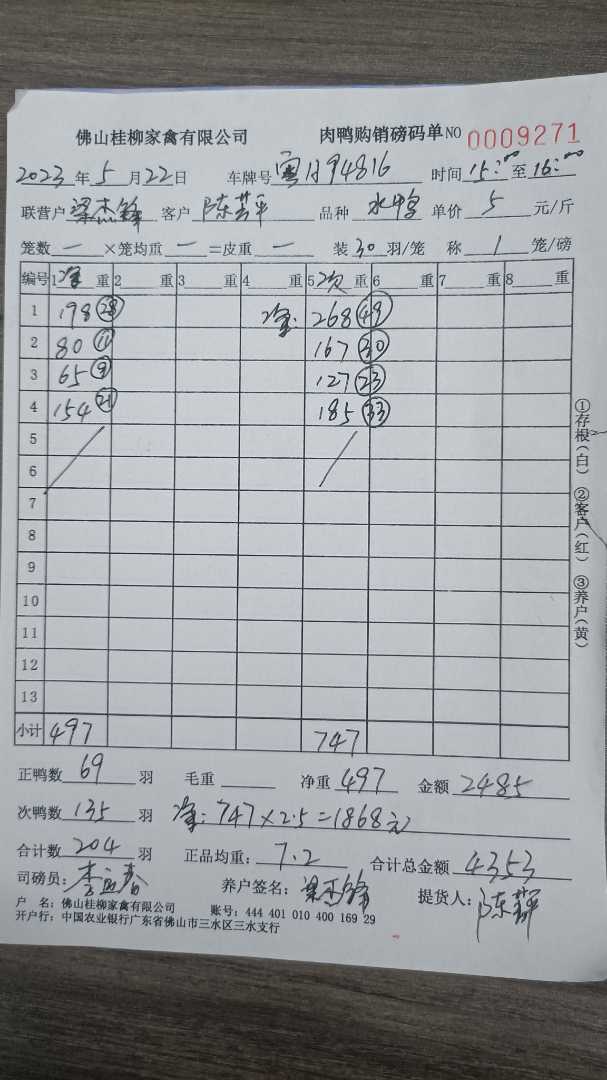 佛山桂柳家禽有限公司 肉鸭购销磅码单NO 0009271
2023年5月22日 车牌号 粤 94816 时间 15:00至16:00
联营户 梁杰锋 客户 陈 平 品种 水鸭 单价 5 元/斤
笼数 一 ×笼均重 一 =皮重 一 装30羽/笼 称 1 笼/磅
编号 1净重 2 重 3 重 4 重 5次重 6 重 7 重 8 重
1 198 28 净: 268 49
2 80 11 167 30
3 65 9 127 23
4 154 21 185 33
5
6
7
8
9
10
11
12
13
小计 497 747
①存根(白) ②客户(红) ③养户(黄)
正鸭数 69 羽 毛重 净重 497 金额 2485
次鸭数 135 羽 净: 747×2.5=1868元
合计数 204 羽 正品均重: 7.2 合计总金额 4353
司磅员: 李 养户签名: 梁杰锋 提货人: 陈
户 名: 佛山桂柳家禽有限公司 账号: 444 401 010 400 169 29
开户行: 中国农业银行广东省佛山市三水区三水支行